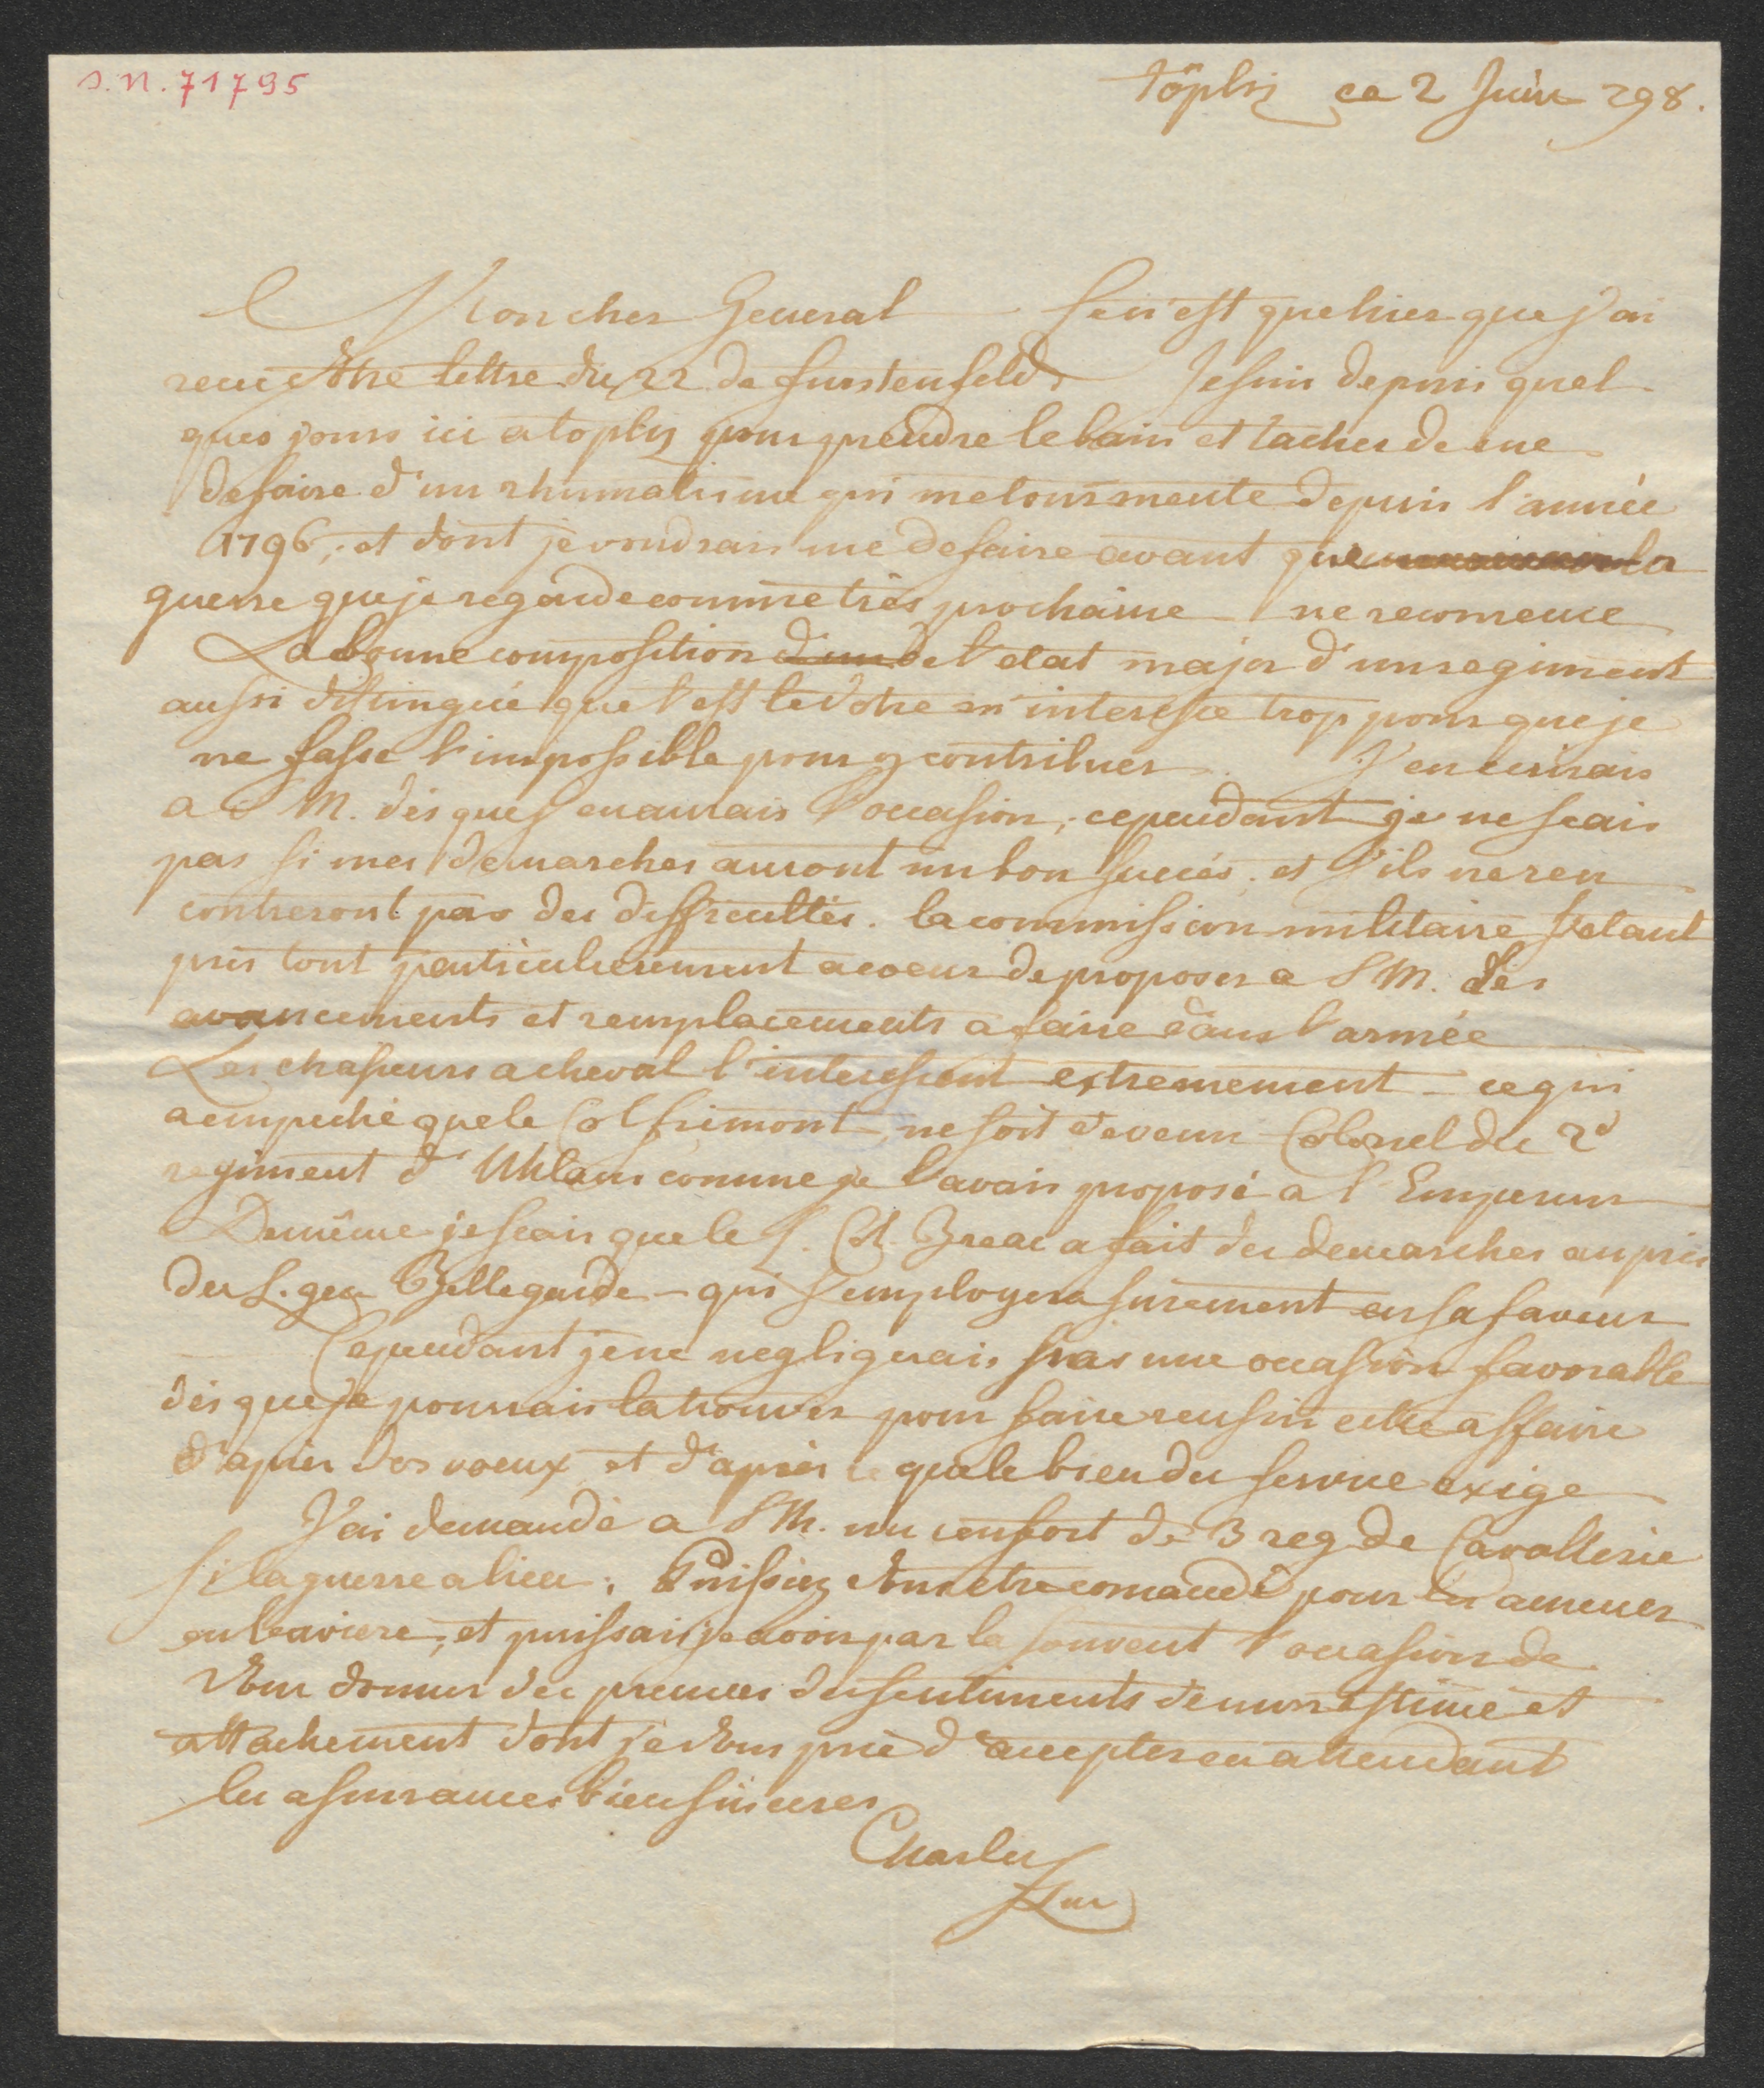 J.N. 71795
Töpliz ce 2 Juin 798.
Mon cher General Ce n'est que hier que j'ai
recu Votre lettre du 22 de furstenfeld. Je suis depuis quel-
ques jours ici a topliz pour prendre le bain et tacher de me
defaire d'un rhumatisme qui me tourmente depuis l'année
1796, et dont je voudrais me defaire avant que la
guerre que je regarde comme très prochaine ne recomence
La bonne composition d'un de l'etat major d'un regiment
aussi distingué que l'est le Votre m'interesse trop pour que je
ne fasse l'impossible pour y contribuer. J'en ecrirais
a S M. dès que j'en aurais l'occasion; cependant je ne scais
pas si mes demarches auront un bon succés. et s'ils ne ren
contreront pas des difficultés. la commission militaire s'etant
pris tout particulierement a coeur de proposer a S M. des
avancements et remplacements a faire dans l'armée
Les chasseurs a cheval l'interessent extremement - ce qui
a empeché que le Col frimont ne soit devenu Colonel du 2d
regiment d'Uhlans comme je l'avais proposé a l'Empereur
De même je scais que le L. Col. a fait des demarches auprès
du L. gen Bellegarde - qui s'employera surement en sa faveur
Cependant je ne negligerais pas une occasion favorable
dès que je pourrais la trouver pour faire reussir cette affaire
d'après Vos voeux et d'après ce que le bien du service exige
J'ai demandé a S M. un renfort de 3 reg de Cavallerie
si la guerre a lieu. Puissiez Vous etre comandé pour les amener
en baviere, et puissai je avoir par la souvent l'occasion de
Vous donner des preuves des sentiments de mon estime et
attachement dont je Vous prie d'accepter en attendant
les assurances bien sinceres
Charles